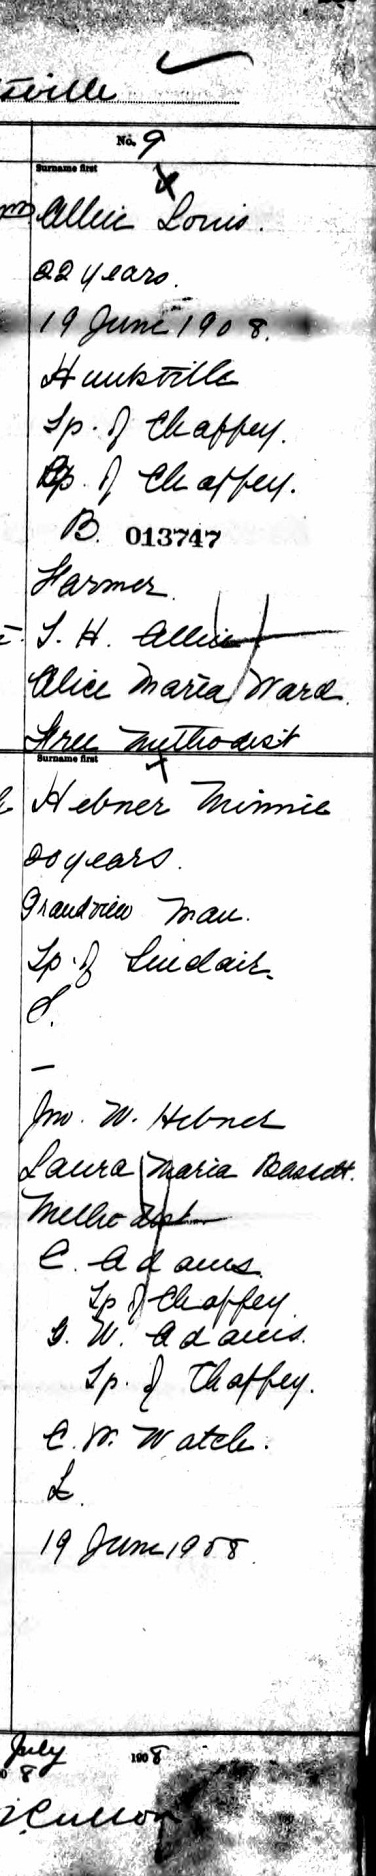 No. 9
Surname first
Louis.
22 years.
19 June 1908.
Huntsville
Tp. of Chaffey.
Tp. of Chaffey.
B. 013747
Farmer.
H.
Alice Maria Ward
Free Methodist
Surname first
Hebner Minnie
20 years.
Grandview Man.
Tp. of Sinclair.
S.
—
Jno. W. Hebner
Laura Maria Bassett.
Methodist
C. Adams.
Tp of Chaffey.
W. Adams.
Tp. of Chaffey.
C. W. Watch.
L.
19 June 1908.
July 1908
8